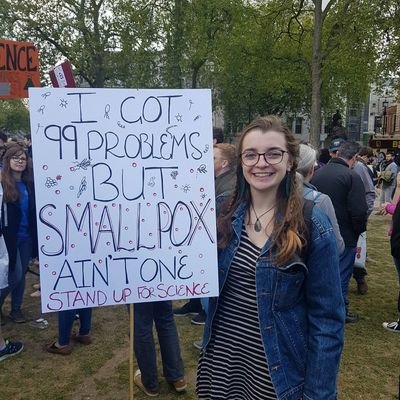 I GOT
99 PROBLEMS
BUT
SMALLPOX
AIN'T ONE
STAND UP FOR SCIENCE
ENCE